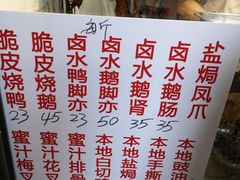 每斤
脆皮烧鸭
23
脆皮烧鹅
45
卤水鸭脚亦
23
卤水鹅脚亦
50
卤水鹅肾
35
卤水鹅肠
35
盐焗凤爪
蜜汁梅叉
蜜汁花
蜜汁排骨
本地白切
本地盐焗
本地手撕
本地豉油